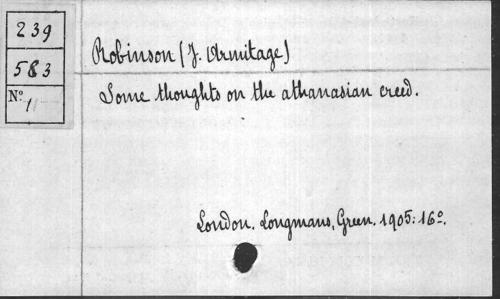 239
583
Nº 1
Robinson (J. Armitage)
Some thoughts on the athanasian creed.
London. Longmans, Green. 1905: 16º.